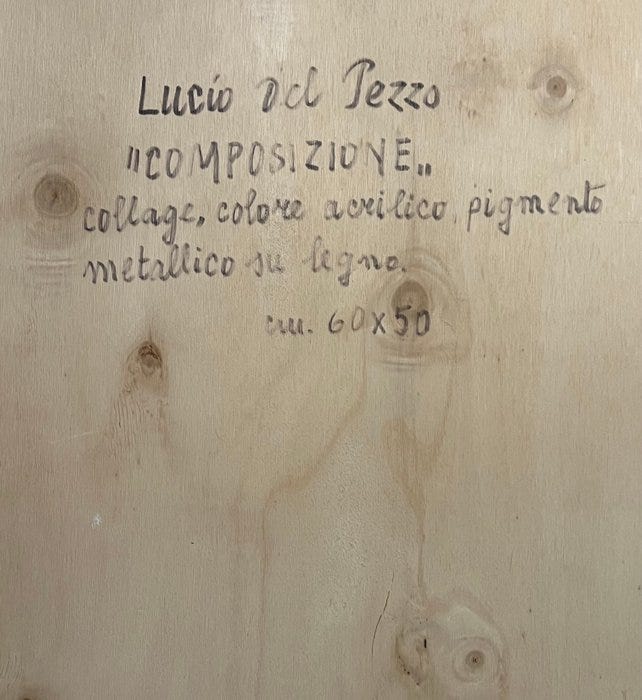 Lucio Del Pezzo
"COMPOSIZIONE„
collage, colore acrilico, pigmento
metallico su legno.
cm. 60x50